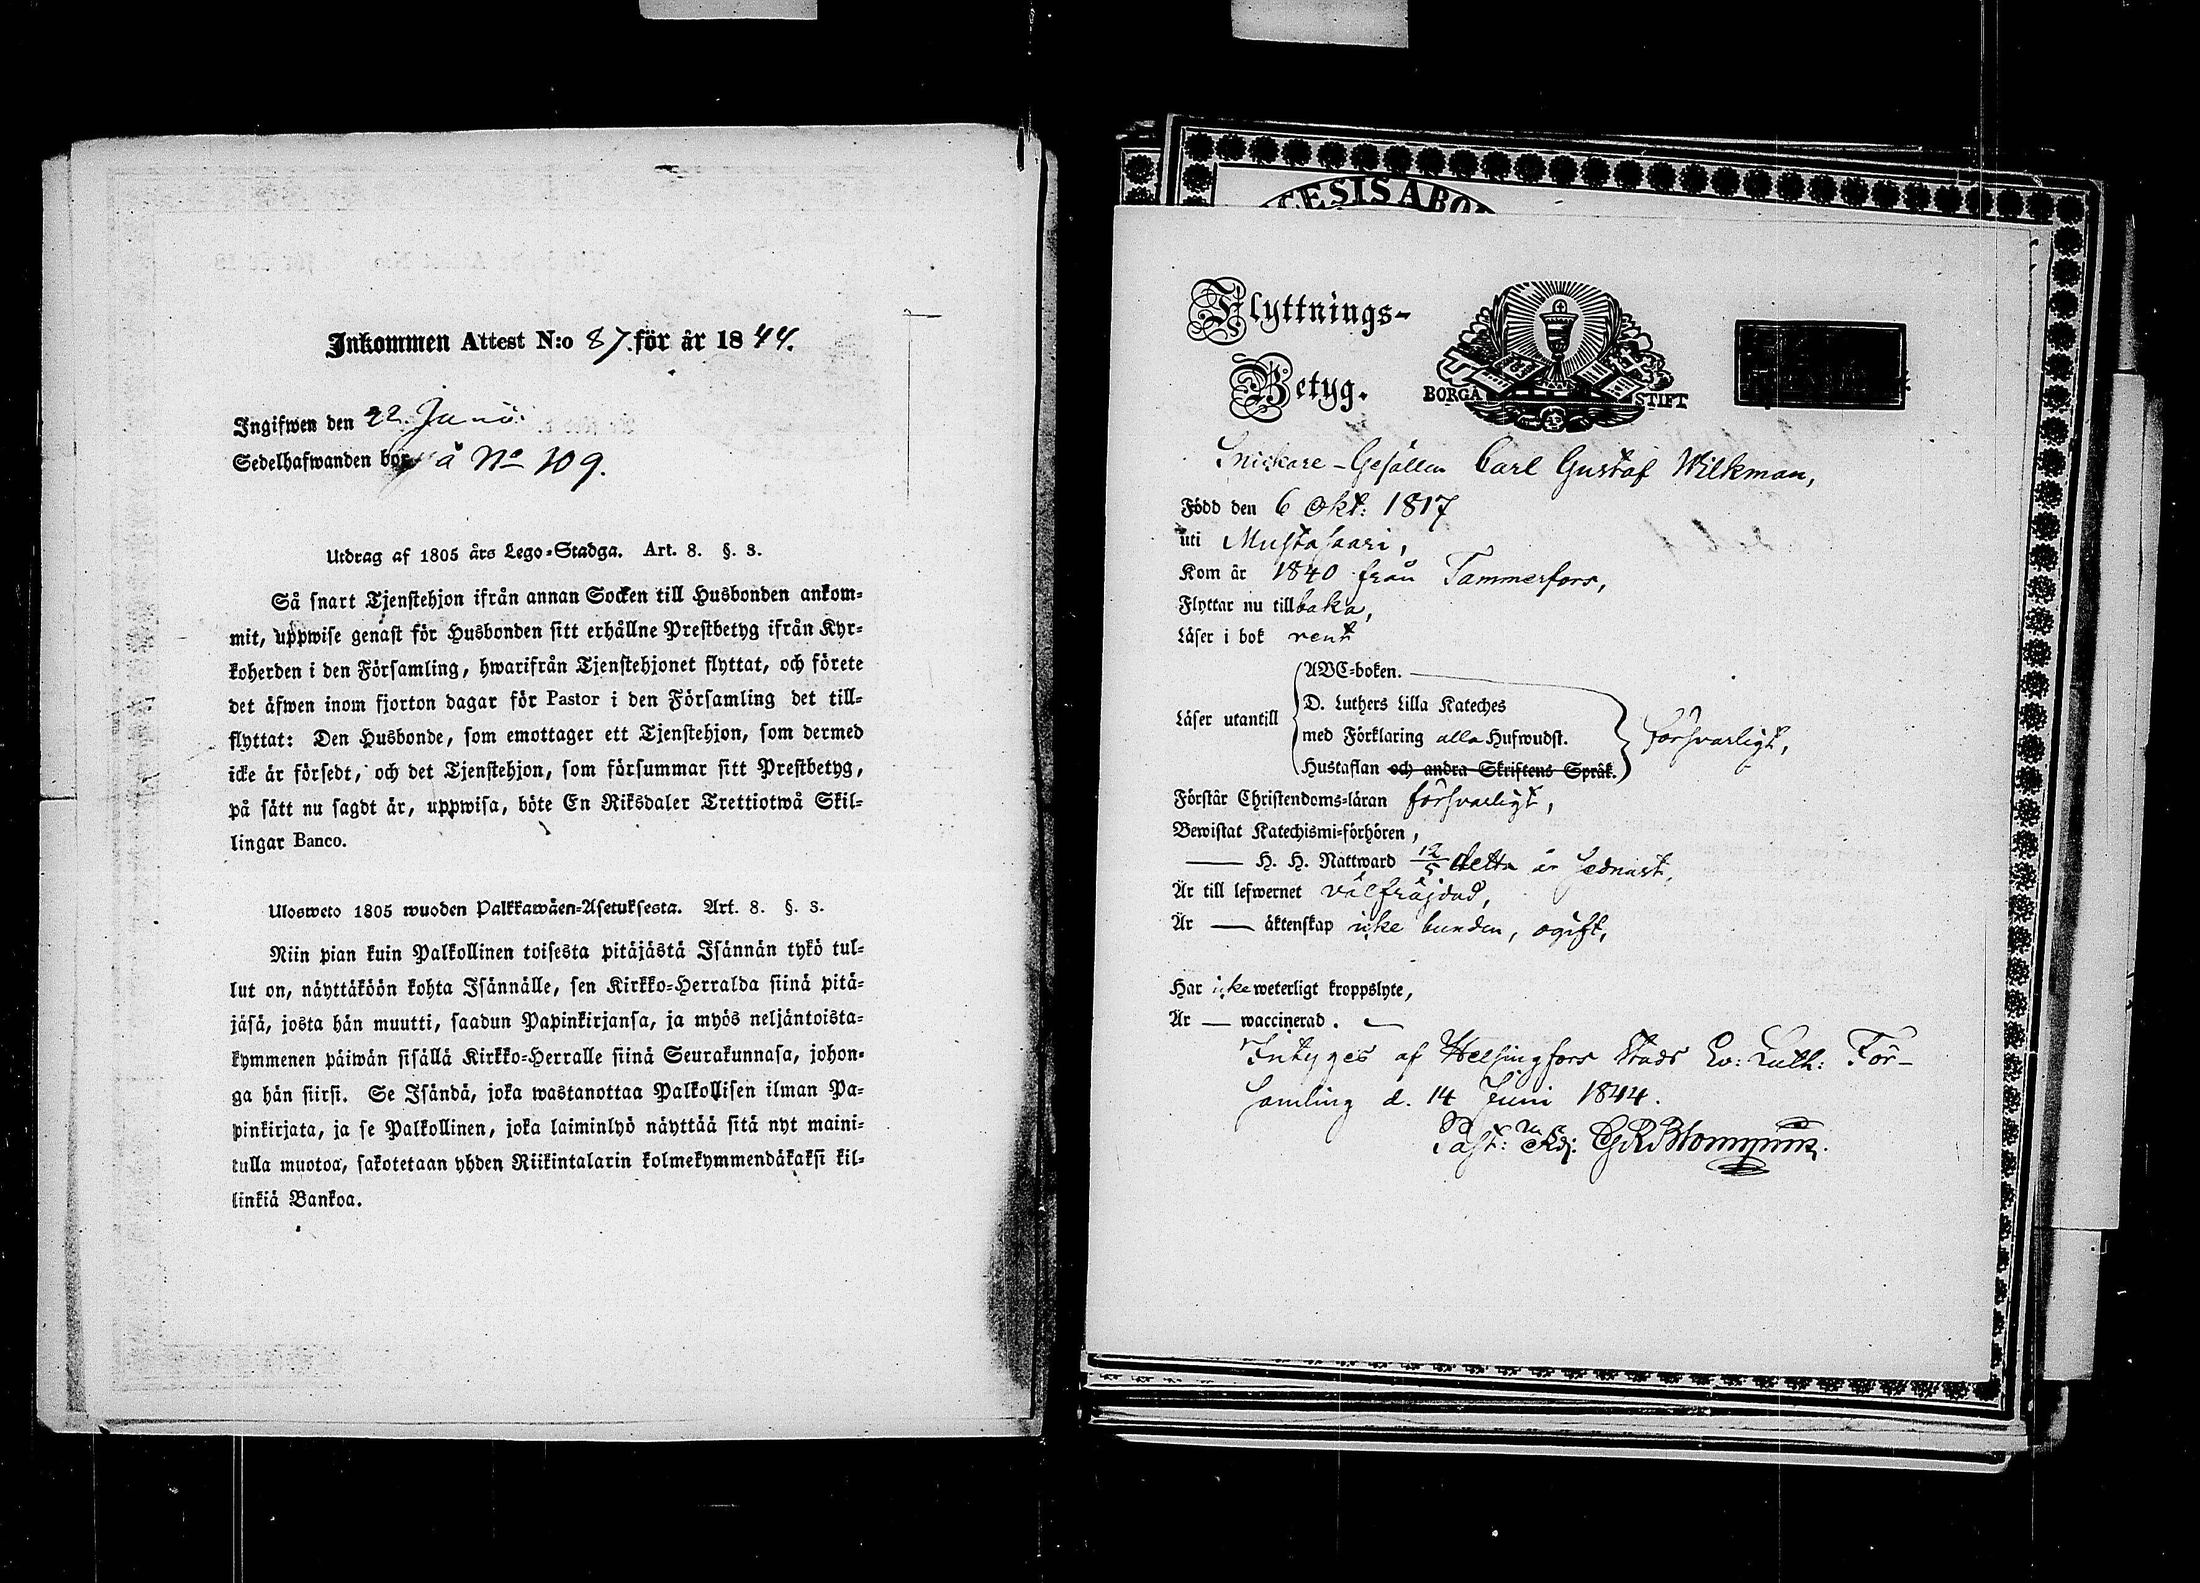 Inkommen Attest N:o 87. för år 1844.
Ingifwen den 22 Junii
Sedelhafwanden bor på No 109.
Utdrag af 1805 års Lego-Stadga. Art. 8. §. 3.
Så snart Tjenstehjon ifrån annan Socken till Husbonden ankom-
mit, uppwise genast för Husbonden sitt erhållne Prestbetyg ifrån Kyr-
koherden i den Församling, hwarifrån Tjenstehjonet flyttat, och förete
det äfwen inom fjorton dagar för Pastor i den Församling det till-
flyttat: Den Husbonde, som emottager ett Tjenstehjon, som dermed
icke är försedt, och det Tjenstehjon, som försummar sitt Prestbetyg,
på sätt nu sagdt är, uppwisa, böte En Riksdaler Trettiotwå Skil-
lingar Banco.
Ulosweto 1805 wuoden Palkkawäen-Asetuksesta. Art. 8. §. 3.
Niin pian kuin Palkollinen toisesta pitäjästä Isännän tykö tul-
lut on, näyttäköön kohta Isännälle, sen Kirkko-Herralda siinä pitä-
jäsä, josta hän muutti, saadun Papinkirjansa, ja myös neljäntoista-
kymmenen päiwän sisällä Kirkko-Herralle siinä Seurakunnasa, johon-
ga hän siirsi. Se Isändä, joka wastanottaa Palkollisen ilman Pa-
pinkirjata, ja se Palkollinen, joka laiminlyö näyttää sitä nyt maini-
tulla muotoa, sakotetaan yhden Riikintalarin kolmekymmendäkaksi kil-
linkiä Bankoa.
CESIS ABO
Flyttnings-
Betyg.
BORGÅ STIFT
Snickare-Gesällen Carl Gustaf Wilkman,
Född den 6 Okt: 1817
uti Mustasaari,
Kom år 1840 från Tammerfors,
Flyttar nu tillbaka,
Läser i bok rent
Läser utantill
ABC-boken.
D. Luthers Lilla Kateches
med Förklaring alla Hufwudst.
Hustaflan och andra Skriftens Språk.
försvarligt,
Förstår Christendoms-läran försvarligt,
Bewistat Katechismi-förhören,
H. H. Nattward 12/5 detta år sednast,
Är till lefwernet välfräjdad,
Är — äktenskap icke bunden, ogift,
Har icke weterligt kroppslyte,
Är — waccinerad.
Intyges af Helsingfors Stads Ev: Luth: För-
samling d. 14 Juni 1844.
Past: Adj: